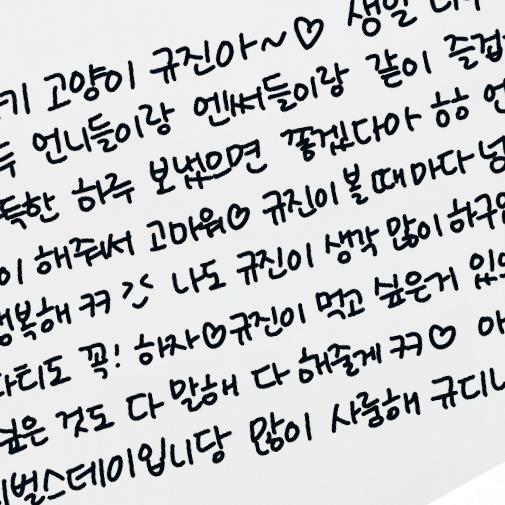 키 고양이 규진아~♡ 생일
언니들이랑 엔써들이랑 같이 즐겁
득한 하루 보냈으면 좋겠다아 흐흐 언
이 해줘서 고마워♡ 규진이 볼 때마다 넘
행복해 ㅋㅋ 나도 규진이 생각 많이 하구
파티도 꼭! 하자♡규진이 먹고 싶은거 있
싶은 것도 다 말해 다 해줄게 ㅋㅋ♡ 아
벌스데이입니당 많이 사룽해 규디니